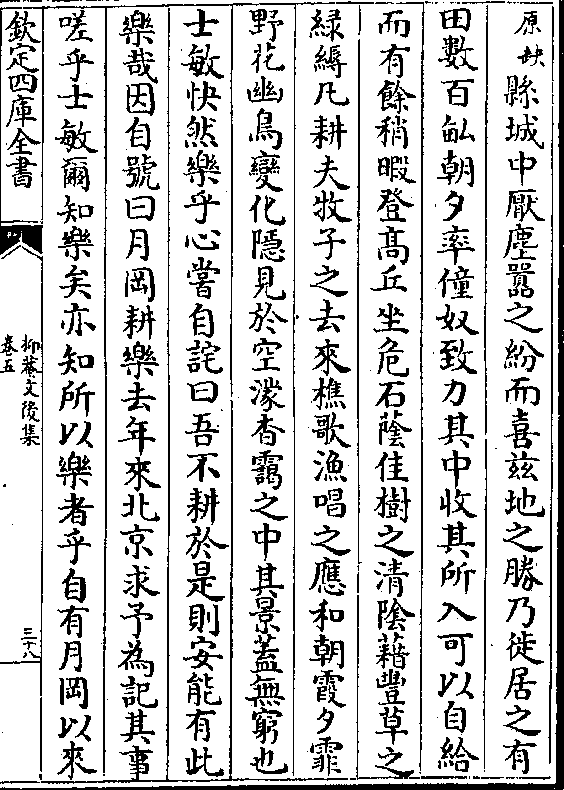 原缺縣城中厭塵囂之紛而喜兹地之勝乃徙居之有
田數百畆朝夕率僮奴致力其中收其所入可以自給
而有餘稍暇登髙丘坐危石蔭佳樹之清陰藉豐草之
緑縟凡耕夫牧子之去來樵歌漁唱之應和朝霞夕霏
野花幽鳥變化隱見於空濛杳靄之中其景蓋無窮也
士敏快然樂乎心嘗自詫曰吾不耕於是則安能有此
樂哉因自號曰月岡耕樂去年來北京求予為記其事
嗟乎士敏爾知樂矣亦知所以樂者乎自有月岡以來
欽定四庫全書
抑菴文後集
卷五
三十八